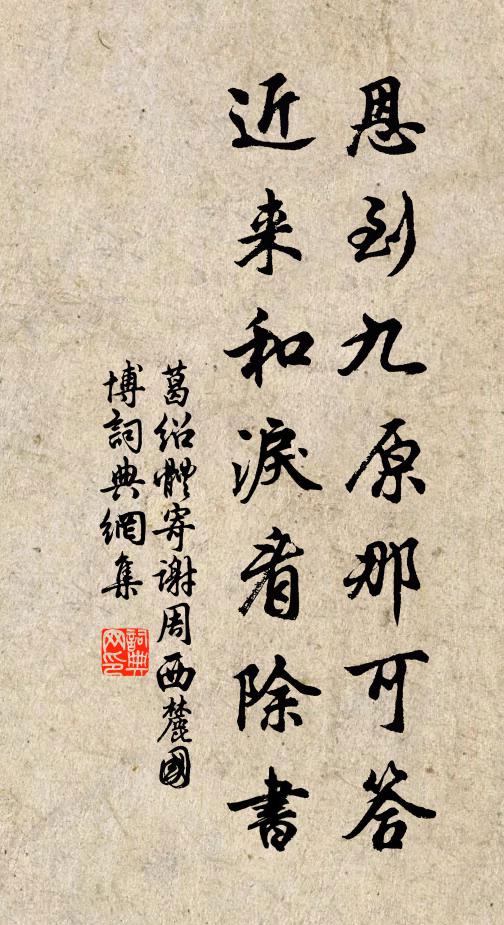 恩到九原那可答
近来和淚看除書
葛绍體寄谢周西麓國
博詞典網集
詞典网印